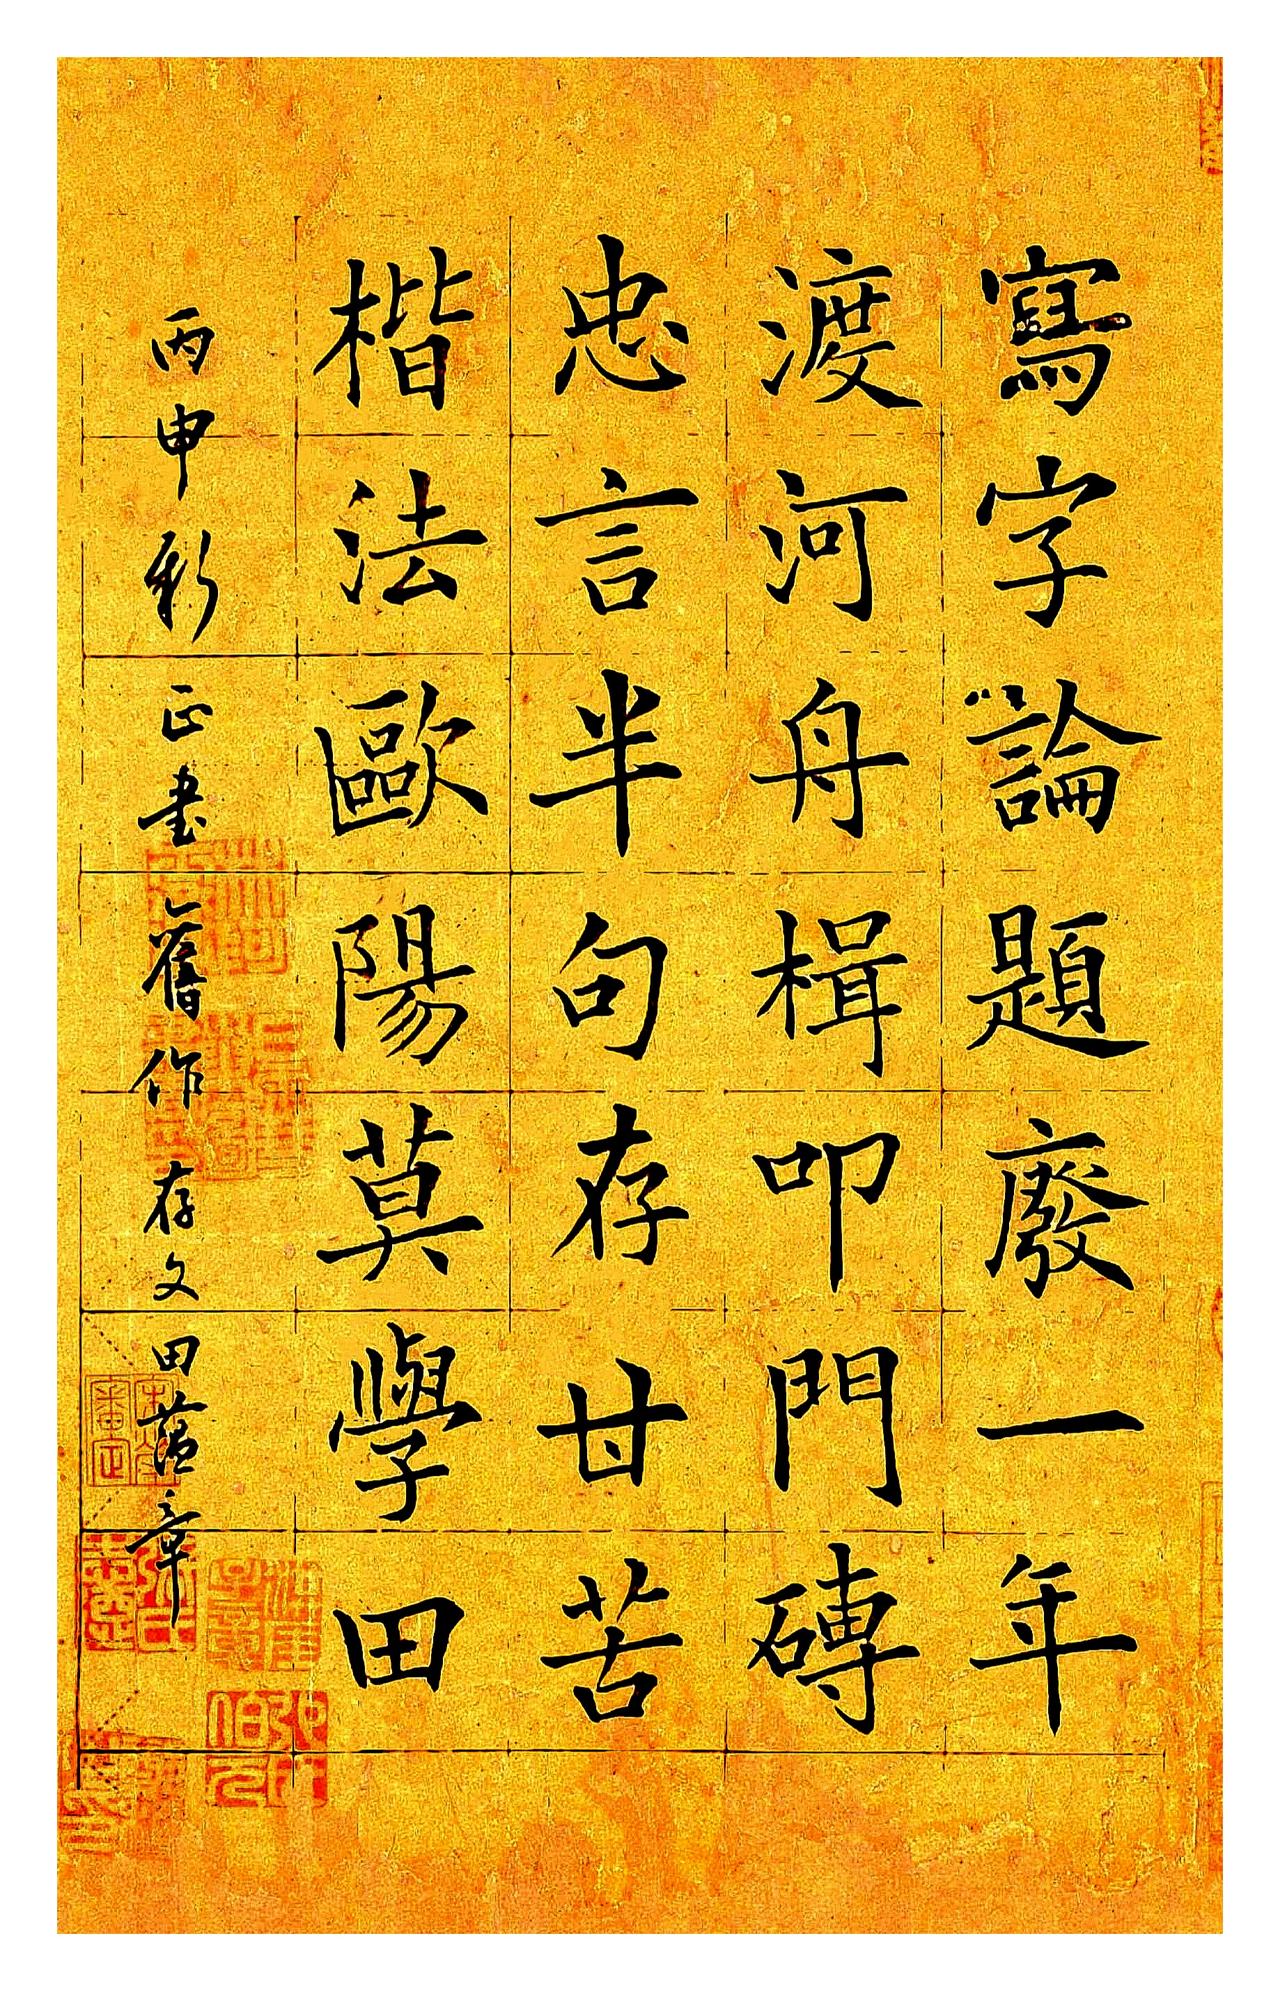 寫字論題廢一年
渡河舟楫叩門磚
忠言半句存甘苦
楷法歐陽莫學田
丙申新正書舊作存文田蘊章